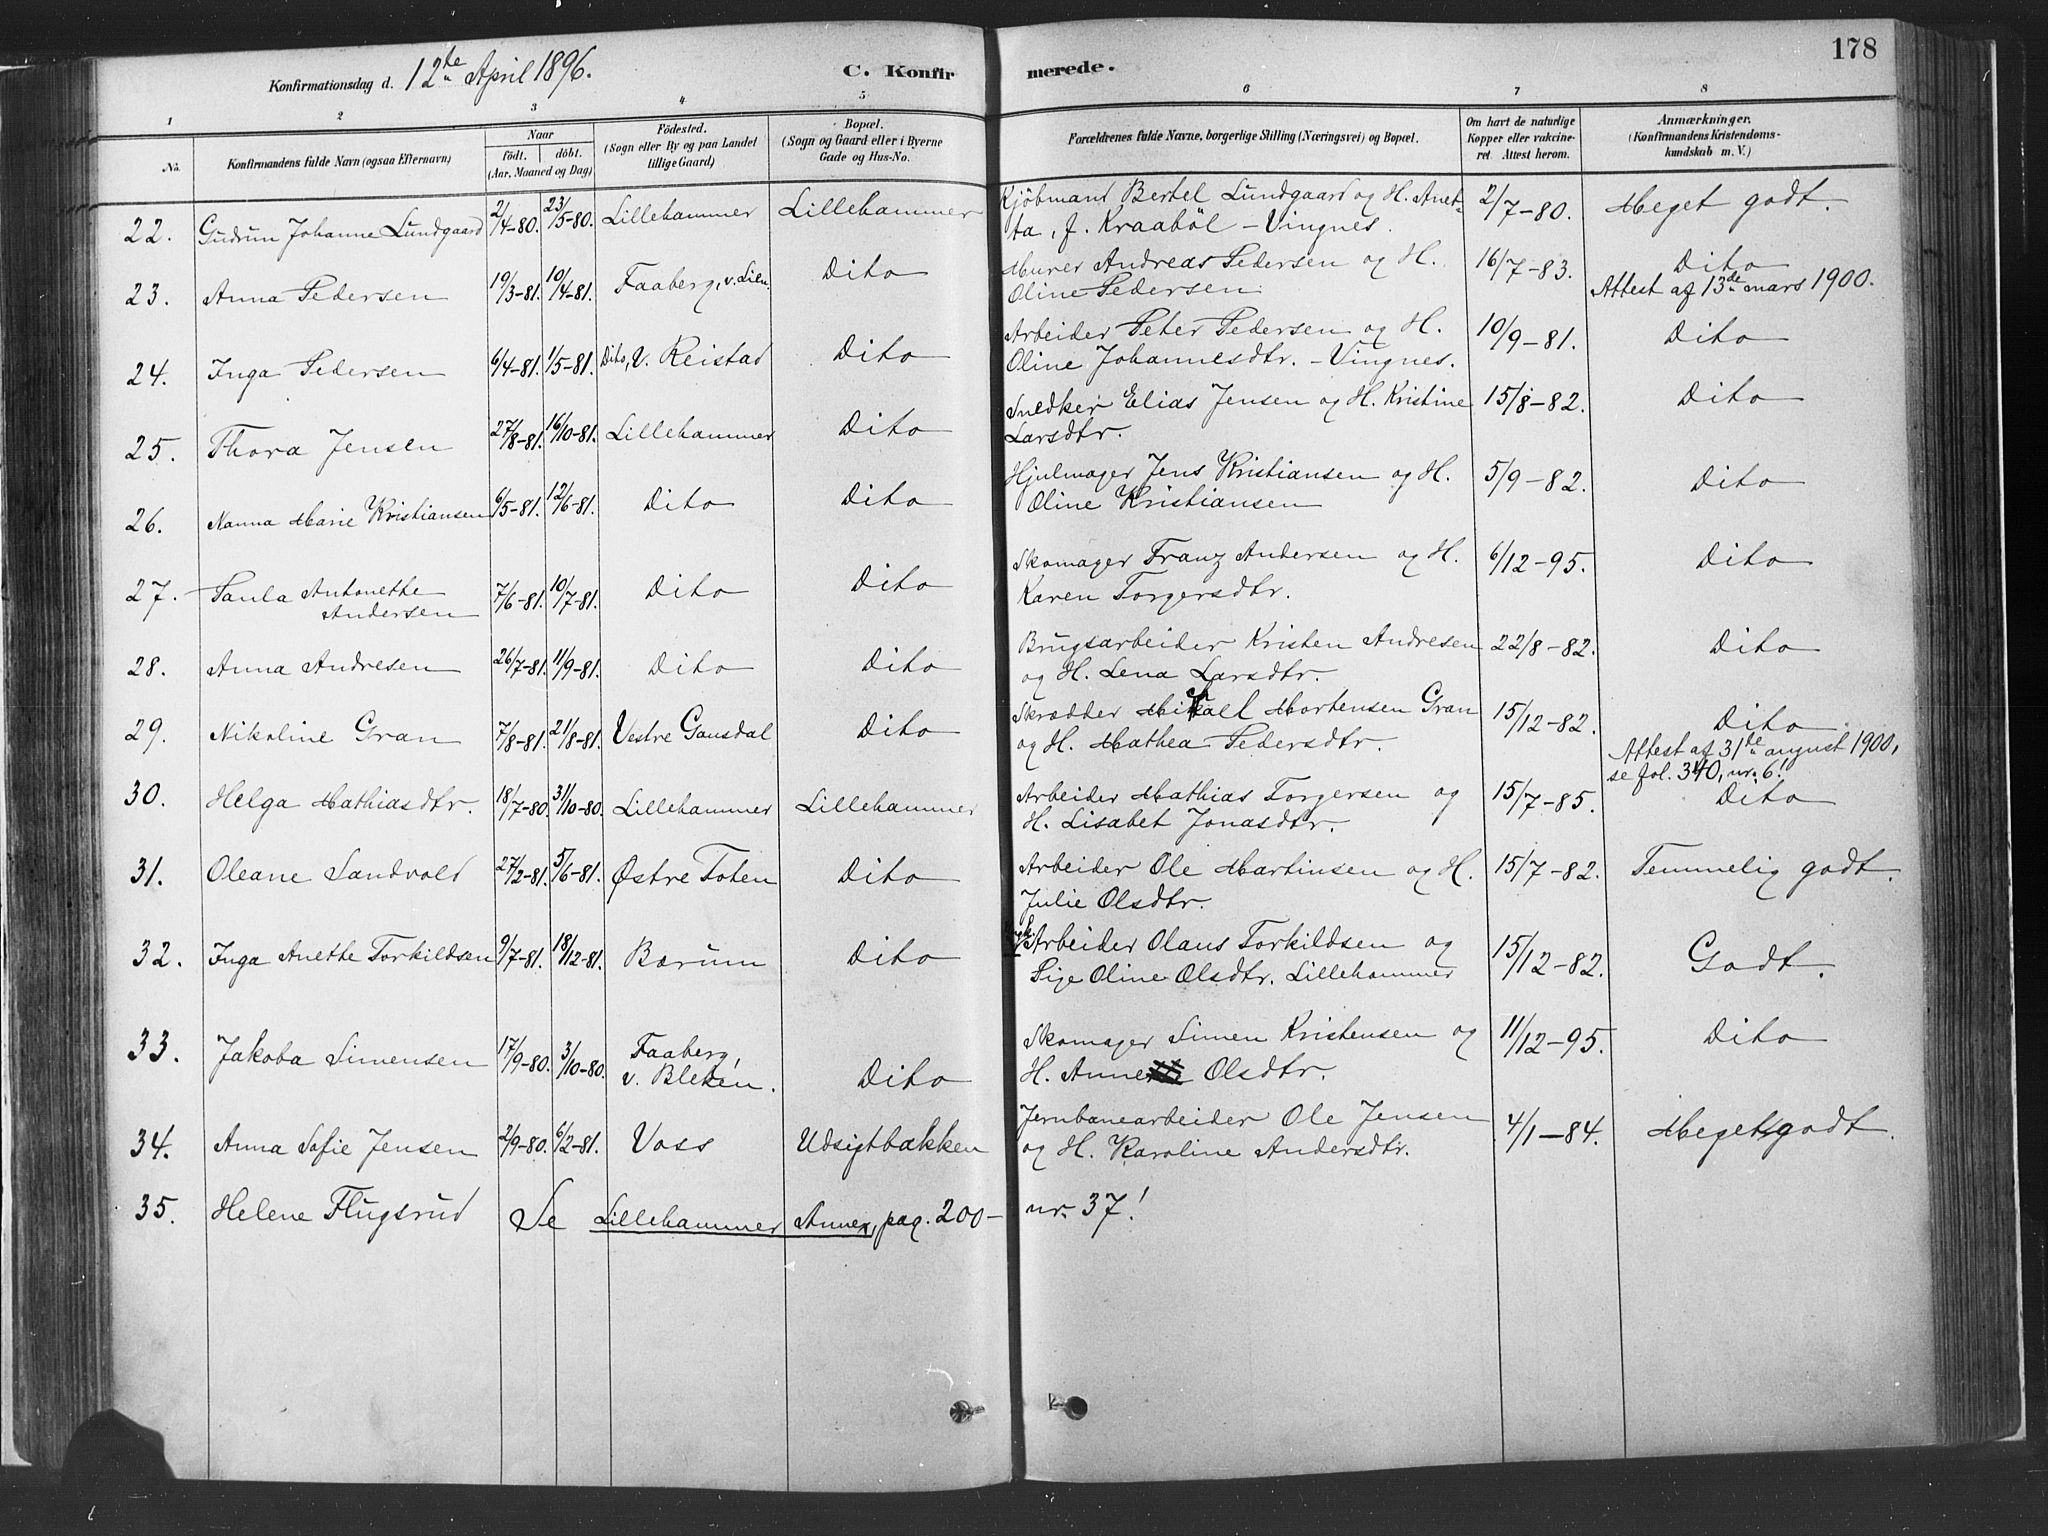 178
Konfirmationsdag d. 12te April 1896. C. Konfirmerede.
1 2 3 4 5 6 7 8
No. Konfirmandens fulde Navn (ogsaa Efternavn) Naar født. døbt. (Aar, Maaned og Dag) Fødested. (Sogn eller By og paa Landet tillige Gaard) Bopæl. (Sogn og Gaard eller i Byerne Gade og Hus-No. Forældrenes fulde Navne, borgerlige Stilling (Næringsvei) og Bopæl. Om havt de naturlige Kopper eller vakcineret Attest herom. Anmærkninger. (Konfirmandens Kristendomskundskab m. V.)
22. Gudrun Johanne Lundgaard 2/4-80. 23/5-80. Lillehammer Lillehammer Kjöbmand Bertel Lundgaard og H. Anet-
ta, f. Kraaböl - Vingnes. 2/7-80. Meget godt.
23. Anna Pedersen 19/3-81. 10/4-81. Faaberg, v. Lien. Dito Murer Andreas Pedersen og H.
Oline Pedersen 16/7-83. Dito
Attest af 13de mars 1900.
24. Inga Pedersen 6/4-81. 1/5-81. Dito, v. Reistad Dito Arbeider Peter Pedersen og H.
Oline Johannesdtr. - Vingnes. 10/9-81. Dito
25. Thora Jensen 27/8-81. 16/10-81. Lillehammer Dito Snedker Elias Jensen og H. Kristine
Larsdtr. 15/8-82. Dito
26. Nanna Marie Kristiansen 6/5-81. 12/6-81. Dito Dito Hjulmager Jens Kristiansen og H.
Oline Kristiansen 5/9-82. Dito
27. Paula Antonette
Andersen 7/6-81. 10/7-81. Dito Dito Skomager Franz Andersen og H.
Karen Torgersdtr. 6/12-95. Dito
28. Anna Andresen 26/7-81. 11/9-81. Dito Dito Brugsarbeider Kristen Andresen
og H. Lena Larsdtr. 22/8-82. Dito
29. Nikoline Gran 7/8-81. 21/8-81. Vestre Gausdal Dito Skrædder Mikall Mortensen Gran
og H. Mathea Pedersdtr. 15/12-82. Dito
Attest af 31te august 1900,
se fol. 340, nr. 6!
30. Helga Mathiasdtr. 18/7-80. 31/10-80. Lillehammer Lillehammer Arbeider Mathias Torgersen og
H. Lisabet Jonasdtr. 15/7-85. Dito
31. Oleane Sandvold 27/2-81. 5/6-81. Østre Toten Dito Arbeider Ole Martinsen og H.
Julie Olsdtr. 15/7-82. Temmelig godt.
32. Inga Anette Torkildsen 9/7-81. 18/12-81. Bærum Dito Arbeider Olaus Torkildsen og
Pige Oline Olsdtr. Lillehammer 15/12-82. Godt.
33. Jakoba Simensen 17/9-80. 3/10-80. Faaberg,
v. Bleken. Dito Skomager Simen Kristensen og
H. Anne Olsdtr. 11/12-95. Dito
34. Anna Sofie Jensen 2/9-80. 6/2-81. Voss Udsigtbakken Jernbanearbeider Ole Jensen
og H. Karoline Andersdtr. 4/1-84. Meget godt.
35. Helene Flugsrud Se Lillehammer Annex, pag. 200- nr. 37!